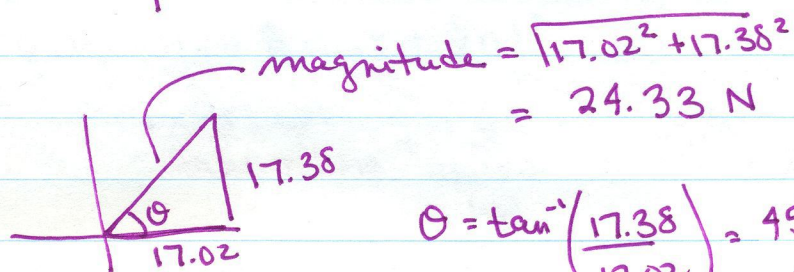 magnitude = √17.02² + 17.38²
= 24.33 N
17.38
θ
17.02
θ = tan⁻¹(17.38